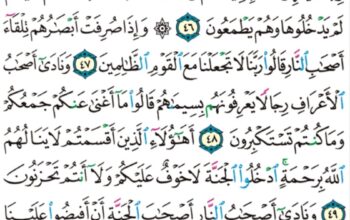 لَمْ يَدْخُلُوهَا وَهُمْ يَطْمَعُونَ ٤٦ ۞ وَإِذَا صُرِفَتْ أَبْصَٰرُهُمْ تِلْقَآءَ
أَصْحَٰبِ ٱلنَّارِ قَالُوا۟ رَبَّنَا لَا تَجْعَلْنَا مَعَ ٱلْقَوْمِ ٱلظَّٰلِمِينَ ٤٧ وَنَادَىٰٓ أَصْحَٰبُ
ٱلْأَعْرَافِ رِجَالًا يَعْرِفُونَهُم بِسِيمَىٰهُمْ قَالُوا۟ مَآ أَغْنَىٰ عَنكُمْ جَمْعُكُمْ
وَمَا كُنتُمْ تَسْتَكْبِرُونَ ٤٨ أَهَٰٓؤُلَآءِ ٱلَّذِينَ أَقْسَمْتُمْ لَا يَنَالُهُمُ
ٱللَّهُ بِرَحْمَةٍ ۚ ٱدْخُلُوا۟ ٱلْجَنَّةَ لَا خَوْفٌ عَلَيْكُمْ وَلَآ أَنتُمْ تَحْزَنُونَ
٤٩ وَنَادَىٰٓ أَصْحَٰبُ ٱلنَّارِ أَصْحَٰبَ ٱلْجَنَّةِ أَنْ أَفِيضُوا۟ عَلَيْنَا